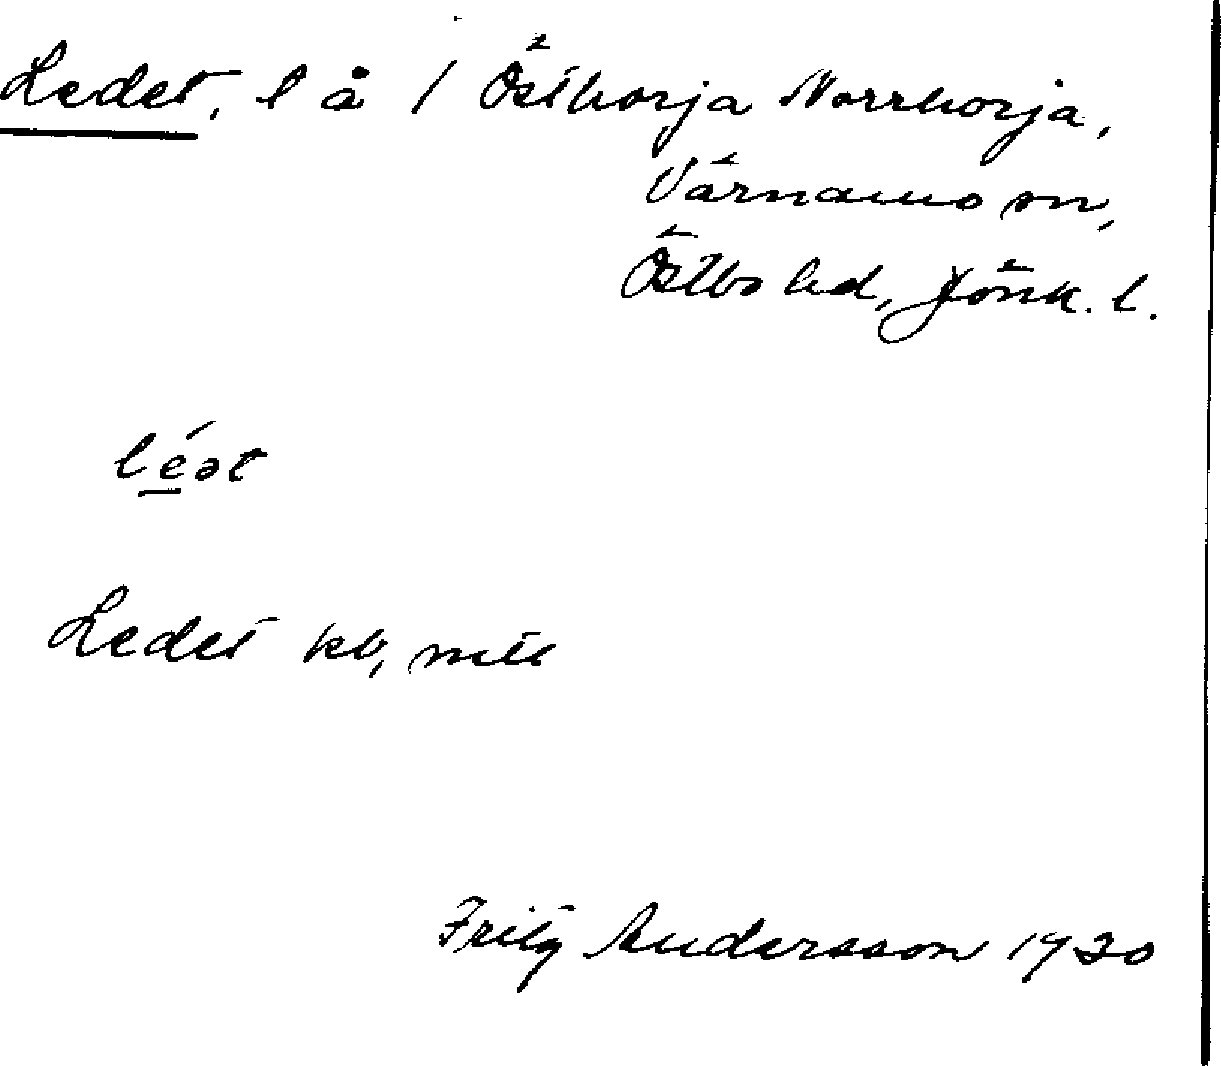 Ledet, l å / Östhorja Norrhorja,
Värnamo sn,
Östbo hd, Jönk. l.
léət
Ledet kb, mtl
Fritz Andersson 1920